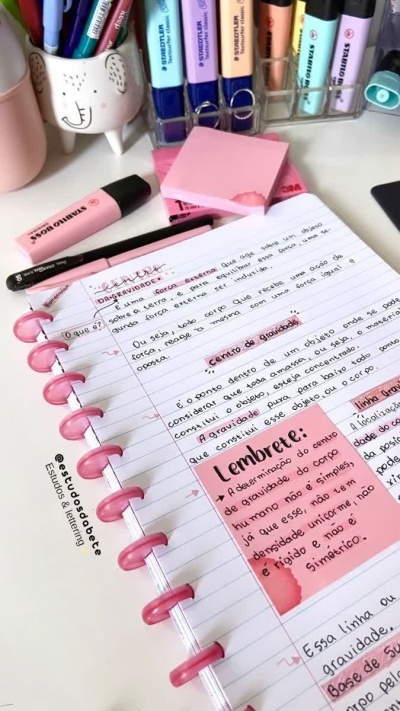 STAEDTLER
Textsurfer classic
STAEDTLER
Textsurfer classic
STAEDTLER
Textsurfer classic
STABILO BOSS
STABILO
STABILO BOSS
STABILO BOSS
3M
centro
DA GRAVIDADE.
O que é?
É uma força externa que age sobre um objeto
sobre a terra e para equilibrar essa força, uma se-
gunda força externa ser induzida.
Ou seja, todo corpo que recebe uma ação de
força, reage a mesma com uma força igual e
oposta.
centro de gravidade
É o ponto dentro de um objeto onde se pode
considerar que toda amassa, ou seja, o material
constitui o objeto, esteja concentrado.
A gravidade puxa para baixo todo ponto
que constitui esse objeto, ou o corpo.
Lembrete:
→ A determinação do centro
de gravidade do corpo
humano não é simples,
já que esse, não tem
densidade uniforme, não
é rígido e não é
simétrico.
linha grav
A localização
dade do co
da posi
pode
xim
Essa linha ou
gravidade.
Base de Su
corpo pelo
@estudosdobete
Estudos & lettering